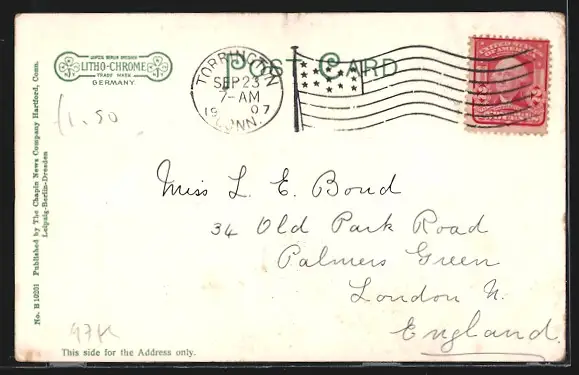 LITHO-CHROME
TRADE MARK
GERMANY.
POST CARD
TORRINGTON
SEP 23
7-AM
1907
CONN.
UNITED STATES
OF AMERICA
f1.50
Miss L. E. Bond
34 Old Park Road
Palmers Green
London N.
England.
No. B 10203 Published by The Chapin News Company Hartford, Conn.
Leipzig-Berlin-Dresden
This side for the Address only.